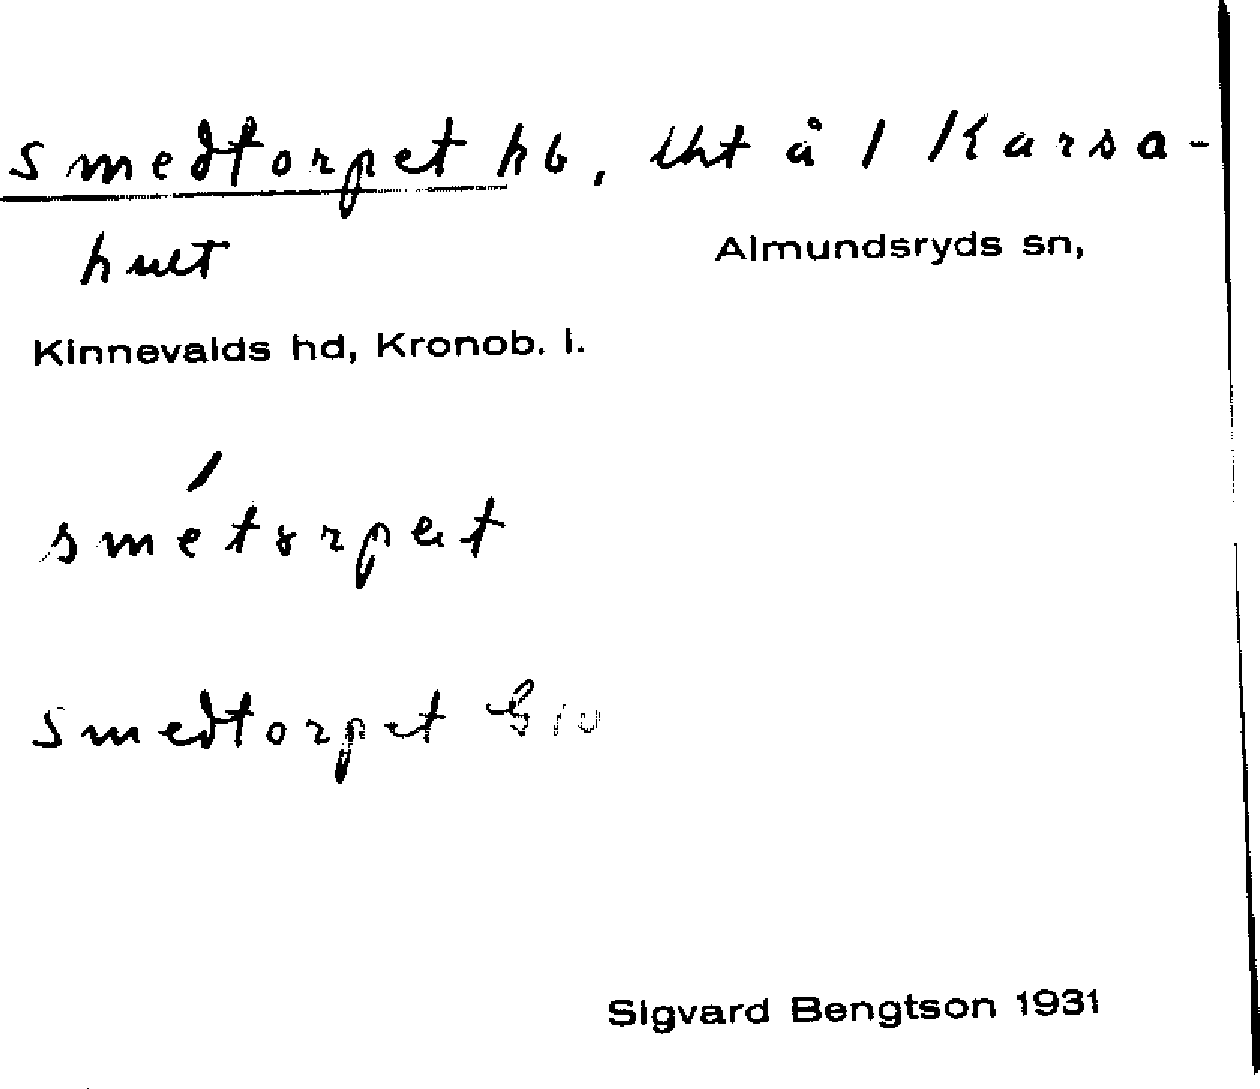 Smedtorpet hb, lht å 1 Karsa-
hult
Almundsryds sn,
Kinnevalds hd, Kronob. l.
smetorpet
Smedtorpet
Sigvard Bengtson 1931